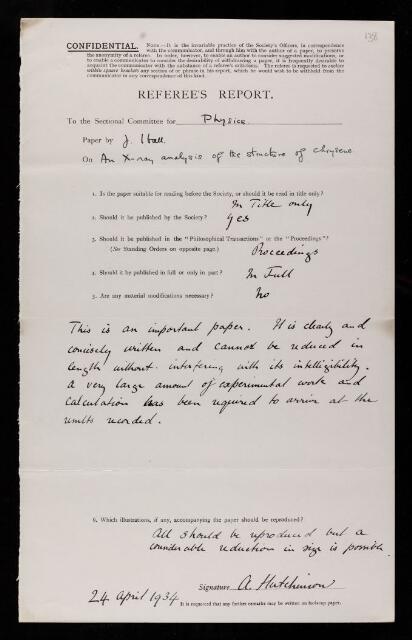 CONFIDENTIAL. NOTE.—It is the invariable practice of the Society's Officers, in correspondence
with the communicator, and through him with the author of a paper, to preserve
the anonymity of a referee. In order, however, to enable an author to consider suggested modifications, or
to enable a communicator to consider the desirability of withdrawing a paper, it is frequently desirable to
acquaint the communicator with the substance of a referee's criticisms. The referee is requested to enclose
within square brackets any section of or phrase in his report, which he would wish to be withheld from the
communicator in any correspondence of this kind.
REFEREE'S REPORT.
To the Sectional Committee for Physics
Paper by J. Iball.
On An X-ray analysis of the structure of chrysene
1. Is the paper suitable for reading before the Society, or should it be read in title only?
In Title only
2. Should it be published by the Society? Yes
3. Should it be published in the "Philosophical Transactions" or the "Proceedings"?
(See Standing Orders on opposite page.) Proceedings
4. Should it be published in full or only in part? In Full
5. Are any material modifications necessary? No
This is an important paper. It is clearly and
concisely written and cannot be reduced in
length without interfering with its intelligibility.
A very large amount of experimental work and
calculation has been required to arrive at the
results recorded.
6. Which illustrations, if any, accompanying the paper should be reproduced?
All should be reproduced but a
considerable reduction in size is possible.
Signature A. Hutchinson
24 April 1934
It is requested that any further remarks may be written on foolscap paper.